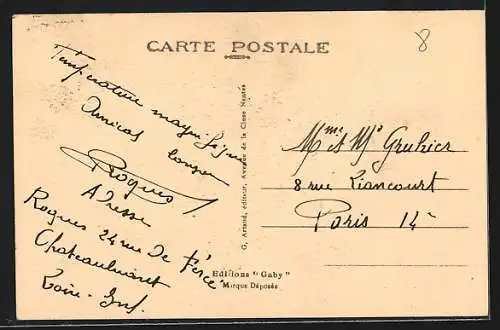 CARTE POSTALE
8
Température magnifique
Amical
Roques
Adresse
Roques 24 rue de Péré
Chateaubriant
Loire-Inf.
G. Artaud, éditeur, Avenue de la Close Nantes
Editions "Gaby"
Marque Déposée
Mme et Mr Gruhier
8 rue Liancourt
Paris 14e